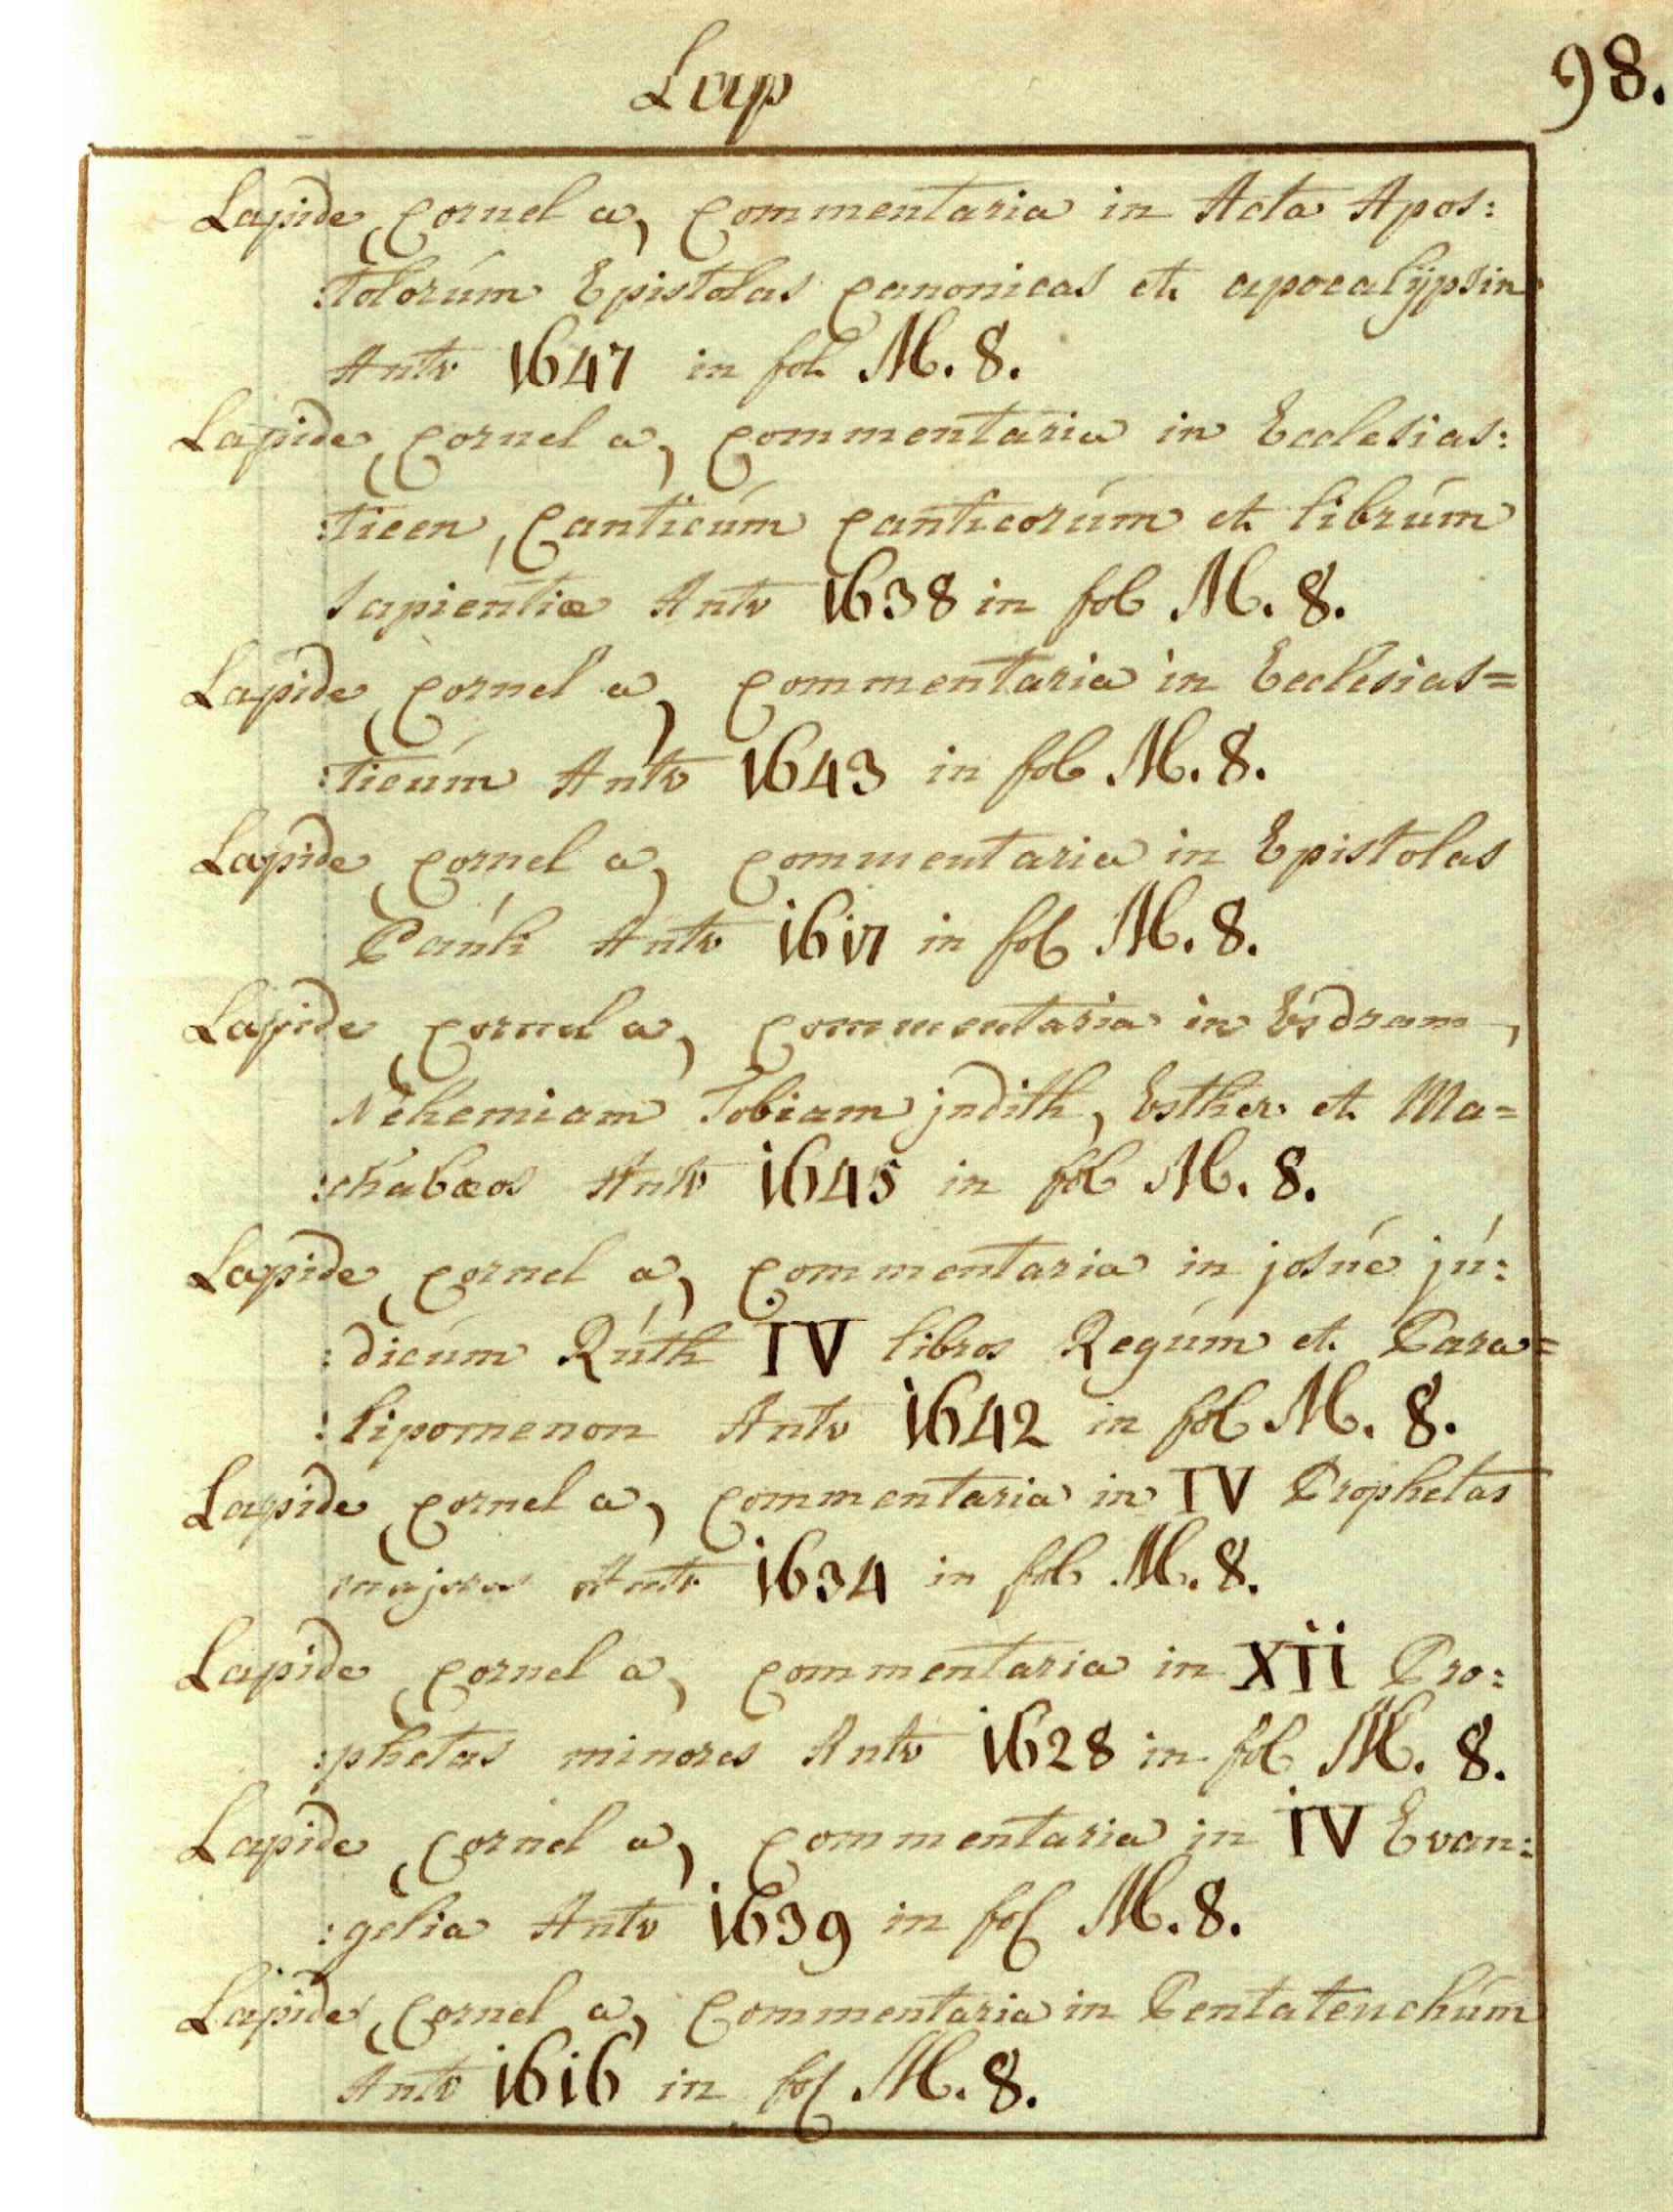 Lap
98.
Lapide, Cornel a, Commentaria in Acta Apos:
:tolorúm Epistolas Canonicas et apocalÿpsin
Antv 1647 in fol M. 8.
Lapide, Cornel a, Commentaria in Ecclesias:
:ticen, Canticúm Canticorúm et librúm
Sapientiæ Antv 1638 in fol M. 8.
Lapide, Cornel a, Commentaria in Ecclesias=
:ticúm Antv 1643 in fol M. 8.
Lapide, Cornel a, Commentaria in Epistolas
Paúli Antv 1617 in fol M. 8.
Lapide, Cornel a, Commentaria in Esdram,
Nehemiam Tobiam judith, Esther et Ma=
:chabæos Antv 1645 in fol M. 8.
Lapide, Cornel a, Commentaria in josúe jú:
:dicúm Rúth IV libros Regúm et Para=
:lipomenon Antv 1642 in fol M. 8.
Lapide, Cornel a, Commentaria in IV Prophetas
majores Antv 1634 in fol M. 8.
Lapide, Cornel a, Commentaria in XII Pro:
:phetas minores Antv 1628 in fol M. 8.
Lapide, Cornel a, Commentaria in IV Evan:
:gelia Antv 1639 in fol M. 8.
Lapide, Cornel a, Commentaria in Pentateuchúm
Antv 1616 in fol M. 8.